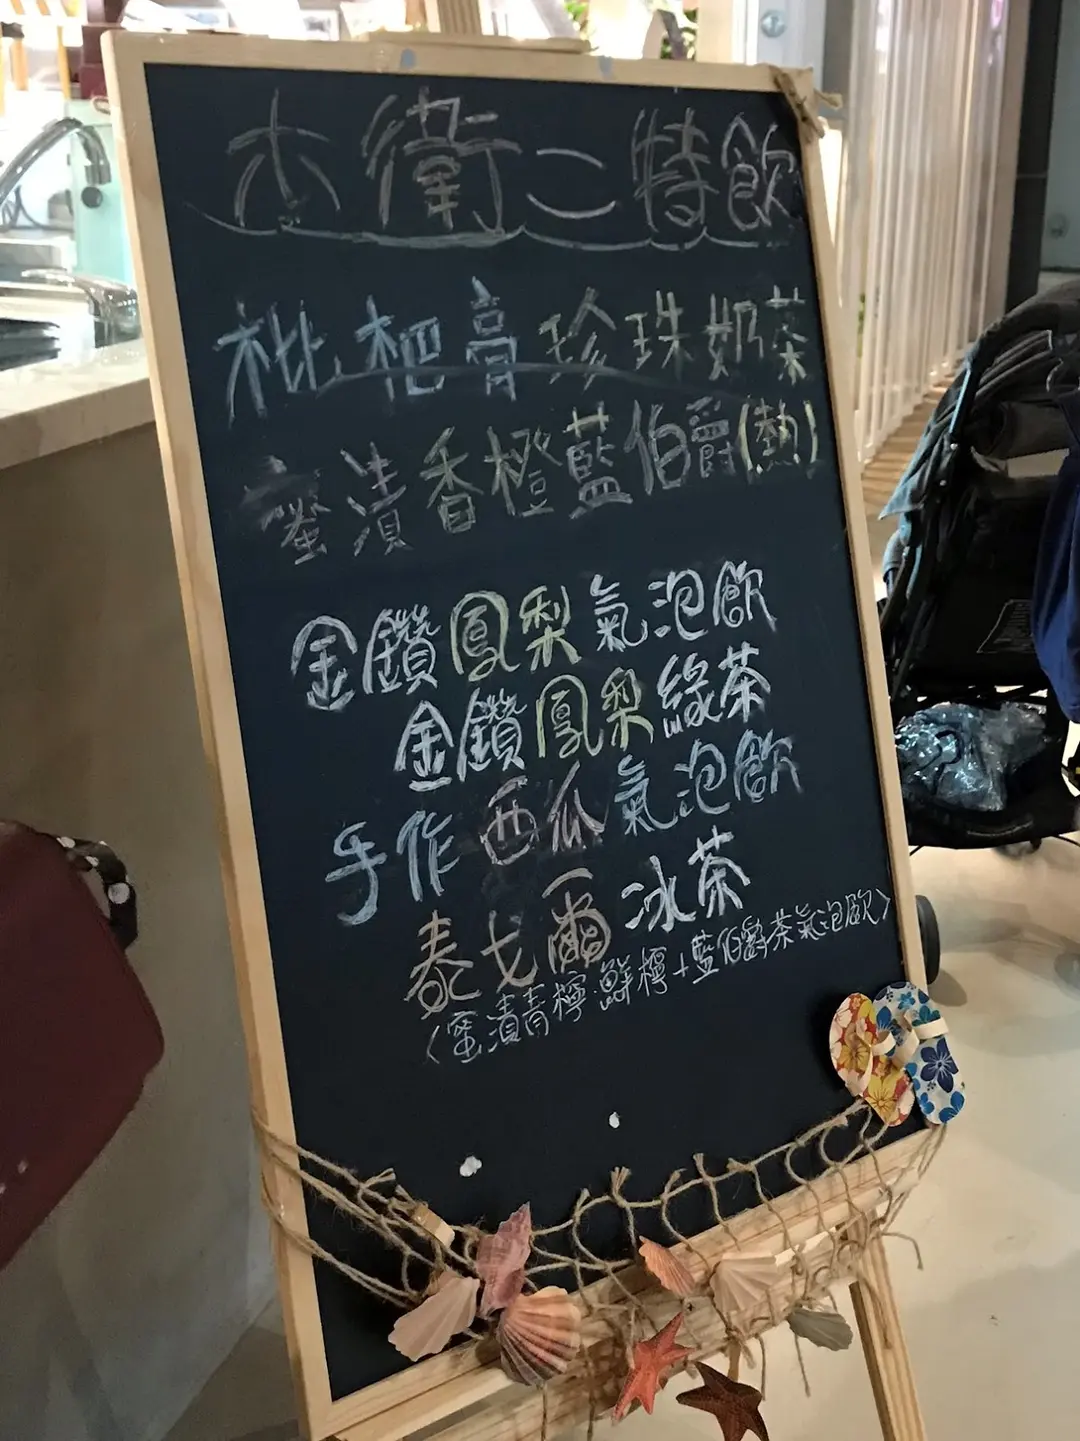 大衛二特飲
枇杷膏珍珠奶茶
蜜漬香橙藍伯爵(熱)
金鑽鳳梨氣泡飲
金鑽鳳梨綠茶
手作西瓜氣泡飲
泰戈爾冰茶
〈蜜漬青檸鮮檸+藍伯爵茶氣泡飲〉